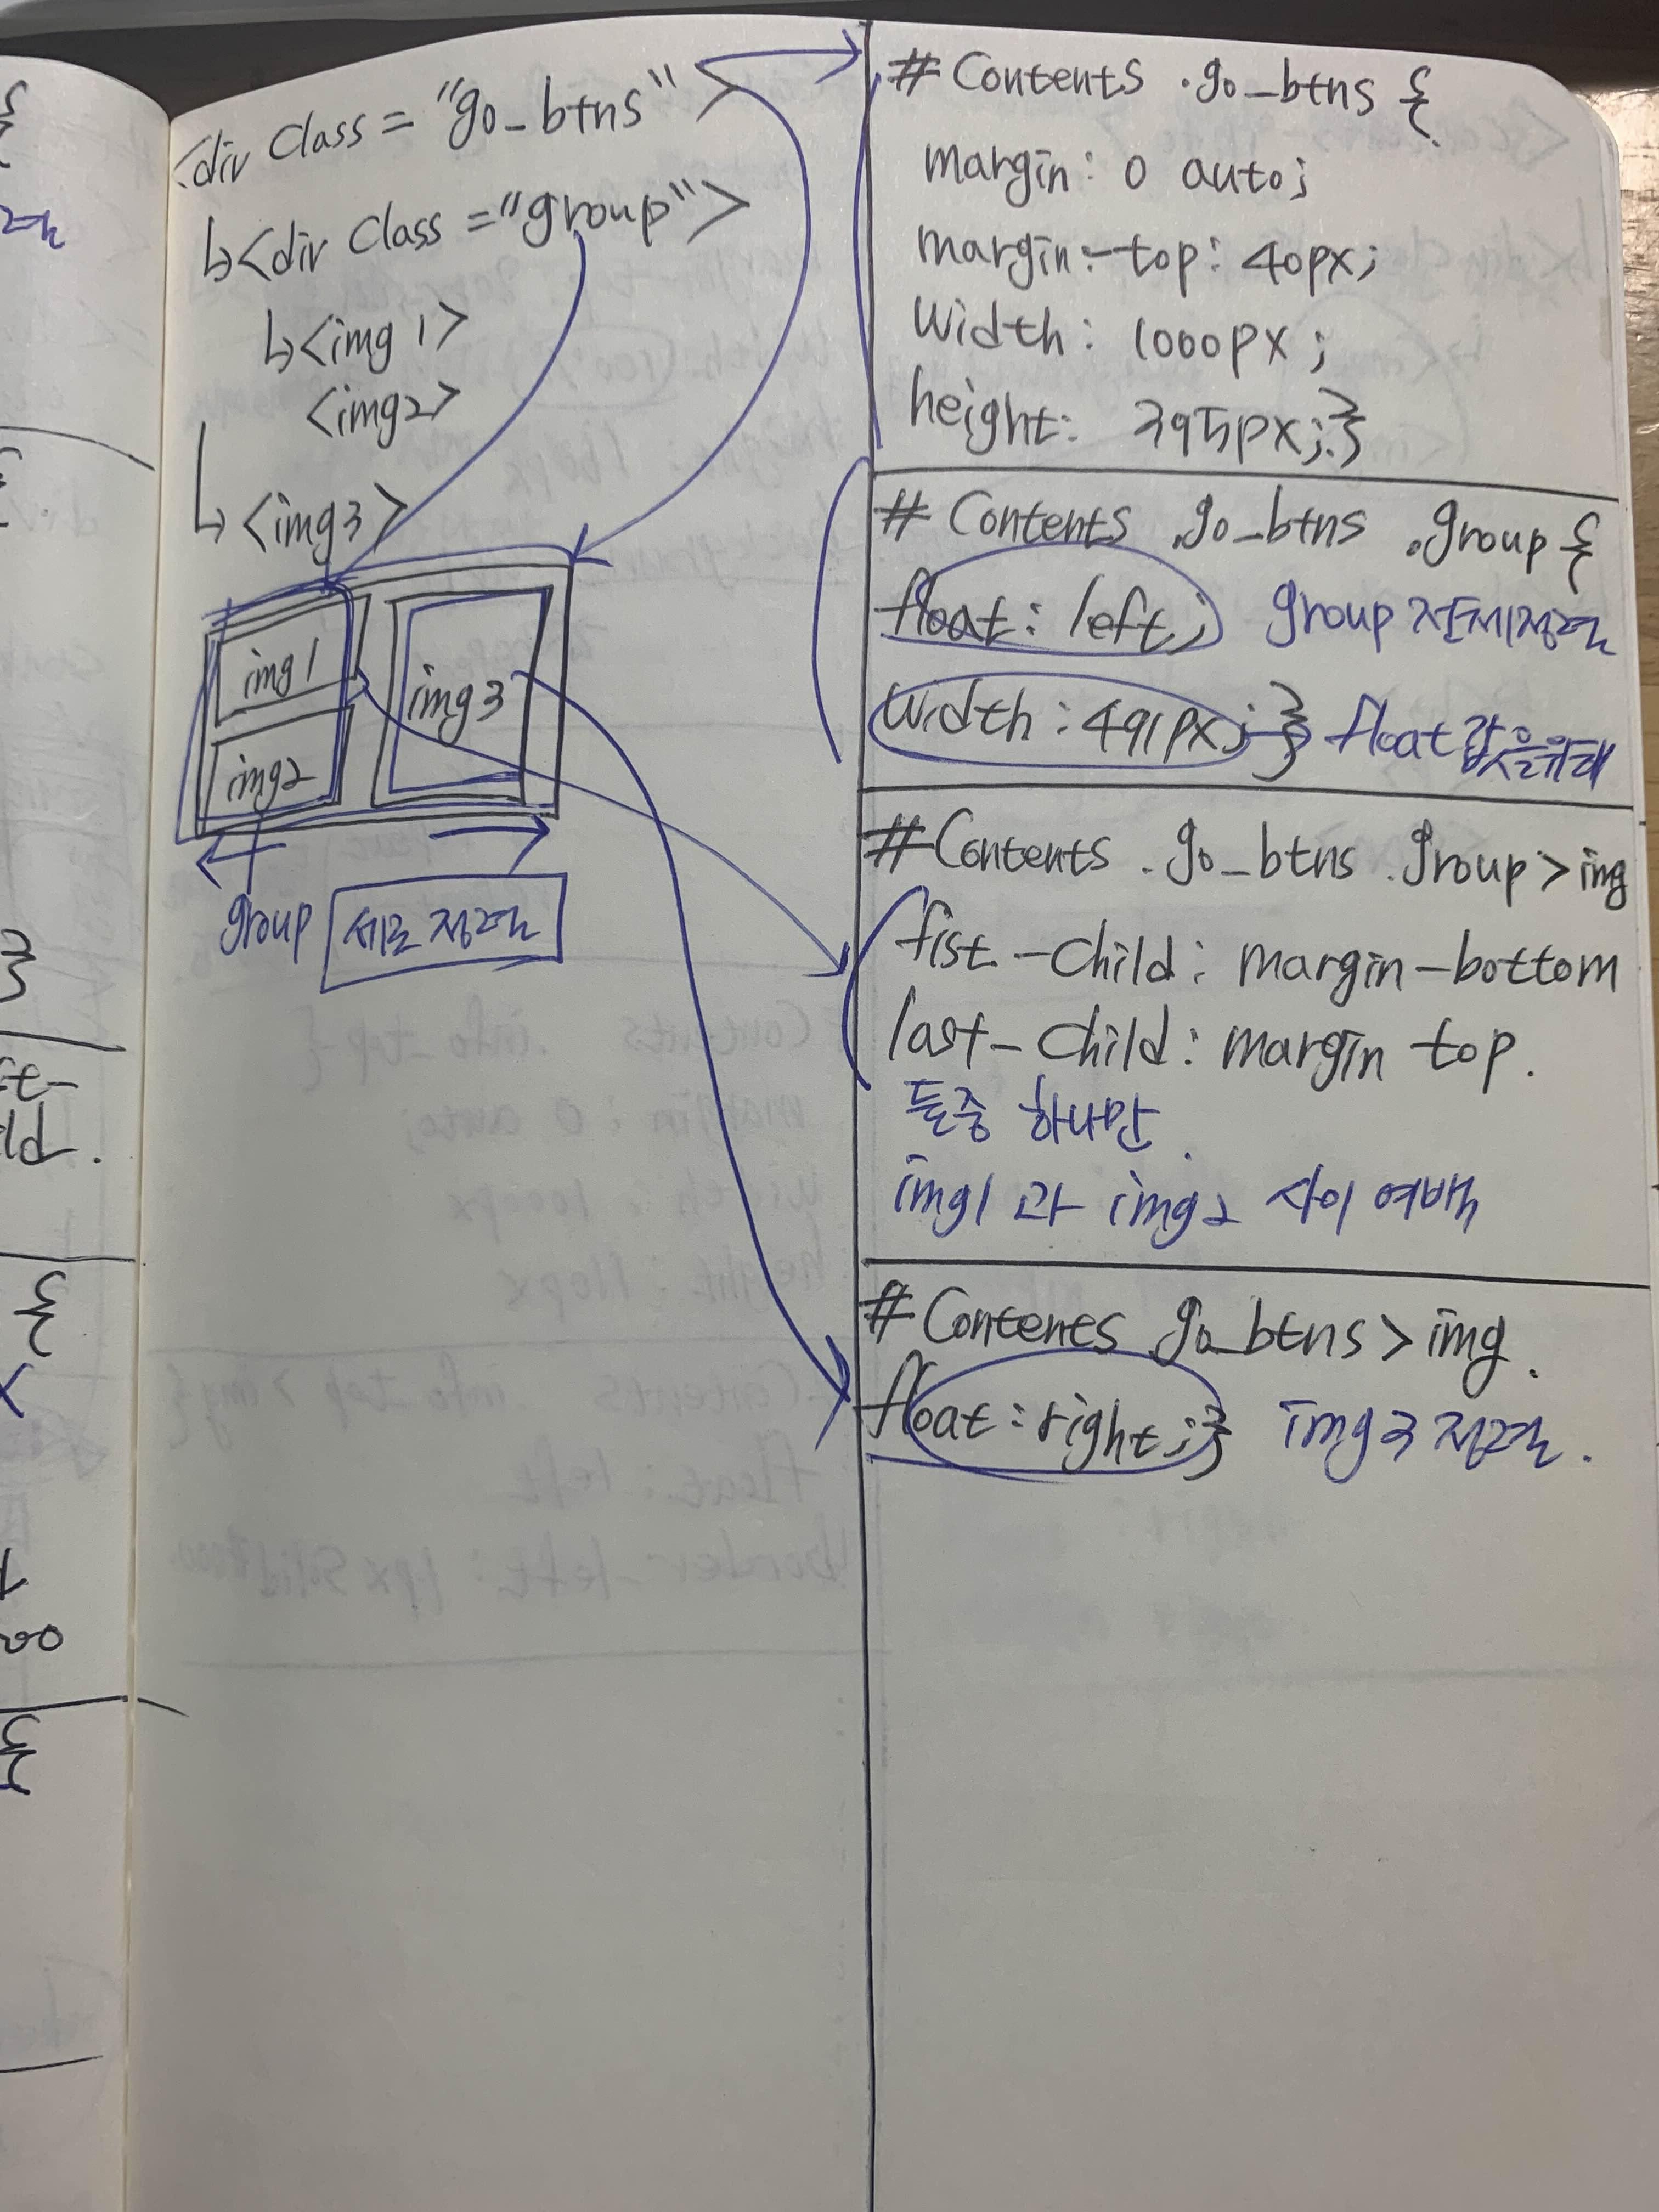 <div class="go_btns">
↳<div class="group">
↳<img 1>
<img2>
↳<img3>
img1
img2
img3
group 세로 정렬
# Contents .go_btns {
margin: 0 auto;
margin-top: 40px;
width: 1000px;
height: 395px;}
# Contents .go_btns .group {
float: left; group 전체정렬
width: 491px; } float 값을위해
# Contents .go_btns .group>img
fist-child: margin-bottom
last-child: margin top.
둘중 하나만
img1 과 img2 사이 여백
# Contents go_btns>img.
float:right;} img3 정렬.